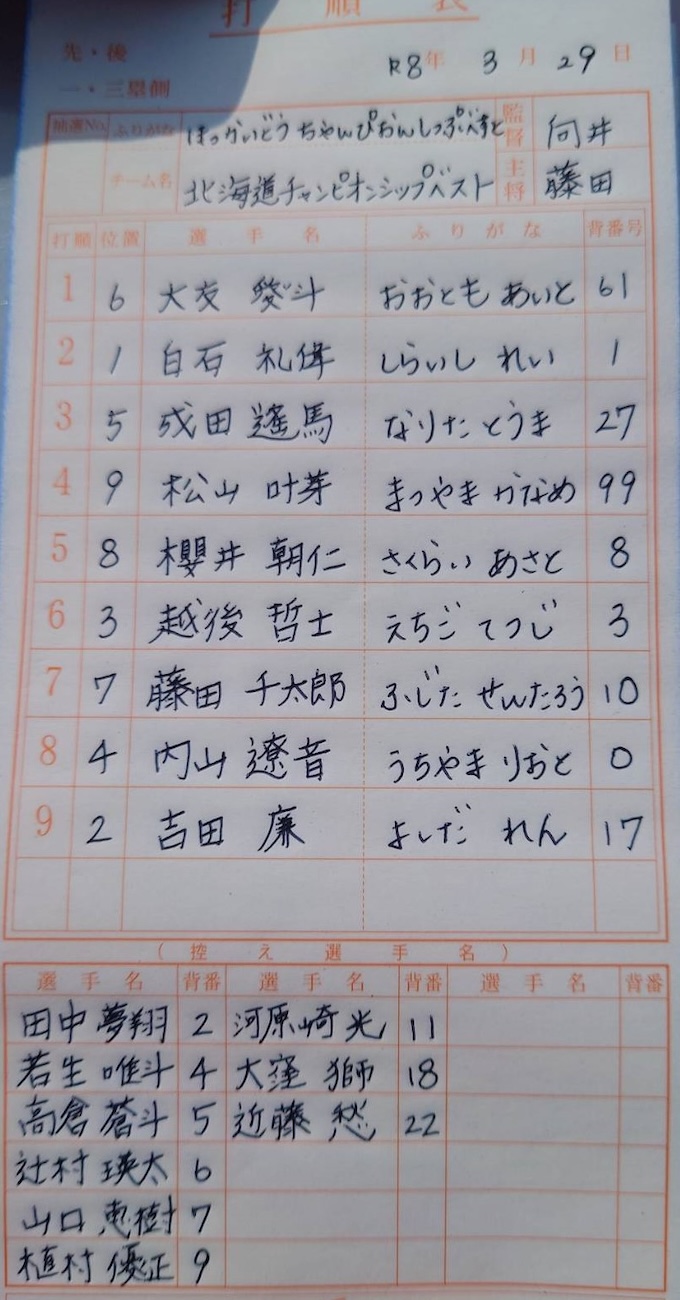 打順表
先・後 R8年 3月 29日
一・三塁側
抽選No. ふりがな ほっかいどうちゃんぴおんしっぷべすと 監督 向井
チーム名 北海道チャンピオンシップベスト 主将 藤田
打順 位置 選手名 ふりがな 背番号
1 6 大友 愛斗 おおとも あいと 61
2 1 白石 礼偉 しらいし れい 1
3 5 成田 遙馬 なりた とうま 27
4 9 松山 叶芽 まつやま かなめ 99
5 8 櫻井 朝仁 さくらい あさと 8
6 3 越後 哲士 えちご てつじ 3
7 7 藤田 千太郎 ふじた せんたろう 10
8 4 内山 遼音 うちやま りおと 0
9 2 吉田 廉 よしだ れん 17
(控え選手名)
選手名 背番 選手名 背番 選手名 背番
田中 夢翔 2 河原崎 光 11
若生 唯斗 4 大窪 獅 18
高倉 蒼斗 5 近藤 愁 22
辻村 瑛太 6
山口 恵樹 7
植村 優正 9